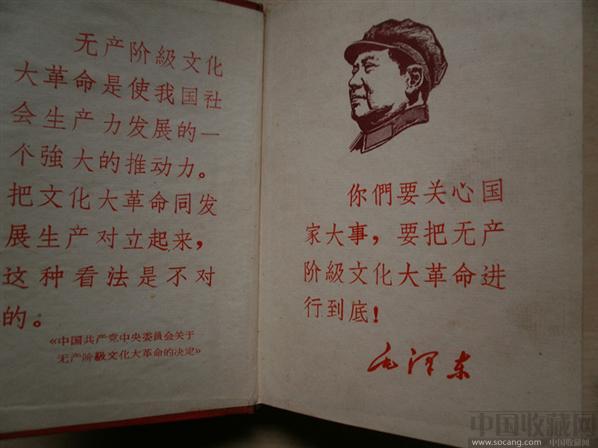 无产阶級文化
大革命是使我国社
会生产力发展的一
个強大的推动力。
把文化大革命同发
展生产对立起来，
这种看法是不对
的。
《中国共产党中央委員会关于
无产阶級文化大革命的决定》
你們要关心国
家大事，要把无产
阶級文化大革命进
行到底！
毛泽东
中国收藏网
www.socang.com